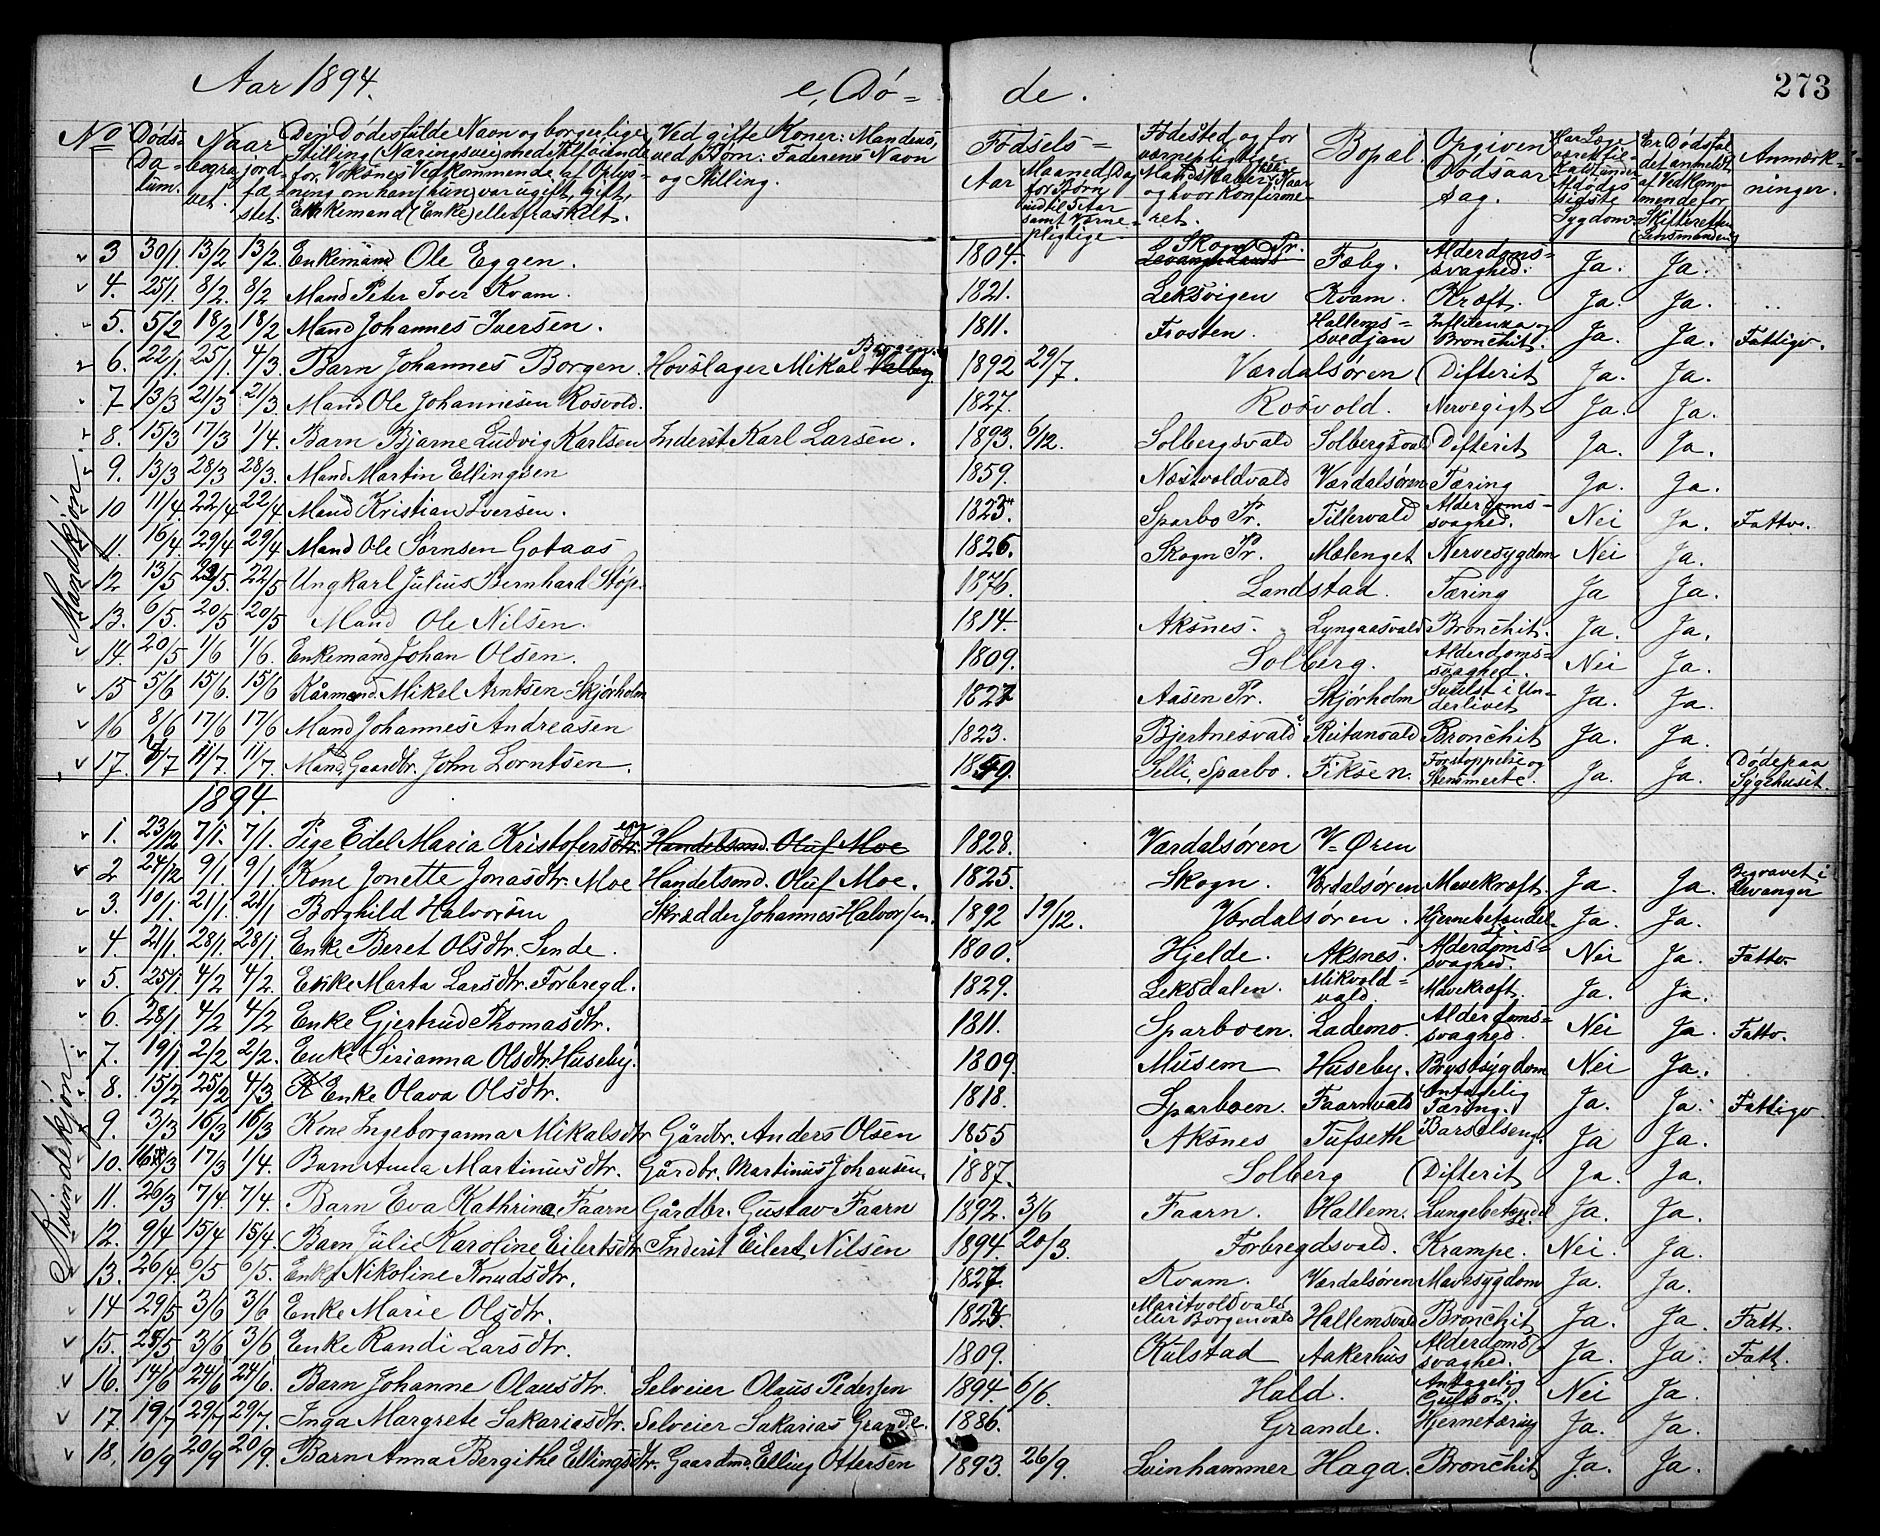 Aar 1894. e, Dö= de. 273
No Døds-Datum. begravet. Naar jordfæstet. Den Dødes fulde Navn og borgerlige Stilling (Næringsvei) med Tilføiende for Voksnes Vedkommende af Oplysning om han (hun) var ugift, gift, Enkemand (Enke) eller fraskilt. Ved gifte Koner: Mandens, ved Børn: Faderens Navn og Stilling. Fødsels= Aar Maaned, Dag for Børn indtil 5 Aar samt Værnepligtige Fødested og for værnepligtig Mandskab naar og hvor Konfirmeret. Bopæl. Opgiven Dødsaarsag. Har Læge været tilkaldt under Afdødes sidste Sygdom. Er Dødsfaldet anmeldt af Vedkommende for Skifteretten (Lensmanden) Anmærkninger.
Mandkjön.
3 30/1 13/2 13/2. Enkemand Ole Eggen. 1804. Levanger Lands Skogn Pr. Fæby. Alderdoms=svaghed. Ja. Ja.
4. 25/1. 8/2. 8/2 Mand Peter Iver Kvam. 1821. Leksvigen Kvam. Kræft. Ja. Ja. ..
5. 5/2 18/2 18/2 Mand Johannes Iversen. 1811. Frosten. Hallems=svedjan Influenza og Bronchit. Ja. Ja. Fattigv.
6. 22/1. 25/1. 4/3. Barn Johannes Borgen. Hovslager Mikal Borgen. 1892 29/7. Værdalsøren Difterit Ja. Ja.
7 13/3 21/3 21/3. Mand Ole Johannesen Rosvold. 1827. Rosvold. Nervegigt Ja. Ja.
8. 15/3 17/3 1/4. Barn Bjarne Ludvig Karlsen Inderst Karl Larsen. 1893. 6/12. Solbergsvald Solbergsvald Difterit Ja. Ja.
9. 13/3 28/3 28/3. Mand Martin Ellingsen 1859. Næstvoldvald Værdalsøren Tæring Ja. Ja.
10 11/4 22/4 22/4. Mand Kristian Iversen. 1825. Sparbo Pr. Tillervald Alderdoms=svaghed. Nei Ja. Fattv.
11. 16/4 29/4 29/4 Mand Ole Sørnsen Gotaas 1826. Skogn Pr. Mælenget Nervesygdom Nei Ja.
12 13/5 22/5 Ungkarl Julius Bernhard Støp. 1876. Landstad. Tæring Ja Ja.
13. 6/5. 20/5 20/5 Mand Ole Nilsen. 1814. Aksnes. Lyngaasvald Bronchit. Ja. Ja.
14. 20/5 1/6 1/6. Enkemand Johan Olsen. 1809. Solberg. Alderdoms=svaghed. Nei Ja.
15 5/6 15/6. 15/6 Kårmand. Mikel Arntsen Skjørholm 1827 Aasen Pr. Skjørholm Svulst i Underlivet Ja. Ja.
16 8/6 17/6 17/6 Mand Johannes Andreasen 1823. Bjertnesvald Reitanvald Bronchit Ja. Ja.
17. 11/7. 11/7. Mand, Gaardbr. John Lorntsen. 1849. Selli, Sparbo. Fiksen. Forstoppelse og Stenmerte. Ja. Ja. Døde paa Sygehuset.
1894.
Kvindekjön.
1. 23/12 7/1. 7/1. Pige Edel Maria Kristofersdtr. Handelsmd. Oluf Moe 1828. Værdalsøren V= Øren
2 24/12 9/1. 9/1 Kone Jonette Jonasdtr. Moe Handelsmd. Oluf Moe. 1825. Skogn. Værdalsøren Mavekræft. Ja. Ja. Begravet i Levanger
3. 19/1. 21/1. 21/1 Borghild Halvorsen Skrædder Johannes Halvorsen. 1892 19/12. Værdalsøren. Hjernebetændelse Ja. Ja.
4. 21/1. 28/1. 28/1. Enke Beret Olsdtr. Sende. 1800. Hjelde. Aksnes. Alderdoms=svaghed. Nei Ja. Fattv.
5. 25/1 4/2 4/2. Enke Marta Larsdtr. Forbregd. 1829. Leksdalen. Mikvold=vald. Mavekræft. Ja. Ja.
6. 28/1 4/2 4/2 Enke Gjertrud Thomasdtr. 1811. Sparboen. Lademo. Alderdoms=svaghed. Nei Ja. Fattv.
7. 19/1 2/2 2/2. Enke Serianna Olsdtr. Huseby. 1809. Musem Huseby. Brystsygdom Nei Ja.
8. 15/2 25/2 4/3 Enke Olava Olsdtr. 1818. Sparboen. Faarnvald Antagelig Tæring. Ja. Ja. Fattigv.
9. 3/3 16/3 16/3 Kone Ingeborganna Mikalsdtr Gårdbr. Anders Olsen 1855 Aksnes Tufseth Barselseng. Ja Ja.
10. 16/3 17/3 1/4. Barn Anna Martinusdtr. Gårdbr. Martinus Johansen. 1887. Solberg Difterit Ja. Ja.
11. 26/3 7/4. 7/4. Barn Eva Kathrina Faarn Gårdbr. Gustav Faarn 1892. 3/6 Faarn. Hallem. Lungebetændelse Ja. Ja.
12. 9/4 15/4 15/4. Barn Julie Karoline Eilertsdtr. Inderst Eilert Nilsen 1894. 20/3. Forbregdsvald. Krampe. Nei. Ja.
13. 26/4 6/5 6/5. Enke Nikoline Knudsdtr. 1827. Kvam. Værdalsøren Mavesygdom Ja. Ja.
14 29/5 3/6 3/6 Enke Marie Olsdtr. 1823. Maritvoldvald eller Borgenvald Hallemsvald Bronchit Ja. Ja. Fatt.
15. 28/5 3/6 3/6 Enke Randi Larsdtr. 1809. Kulstad Aakerhus Alderdoms svaghed. Ja. Ja. Fatt.
16. 14/6 24/6 24/6. Barn Johanne Olausdtr. Selveier Olaus Pedersen 1894. 6/6. Hald. Antagelig Gulsot. Nei Ja.
17. 19/7 29/7 29/7. Inga Margrete Sakariasdtr. Selveier Sakarias Grande. 1886. Grande. Hjernetæring Ja. Ja.
18. 10/9 20/9 20/9. Barn Anna Bergithe Ellingsdtr. Gaardmd. Elling Ottersen 1893. 26/9. Svinhammer Haga. Bronchit Ja. Ja.